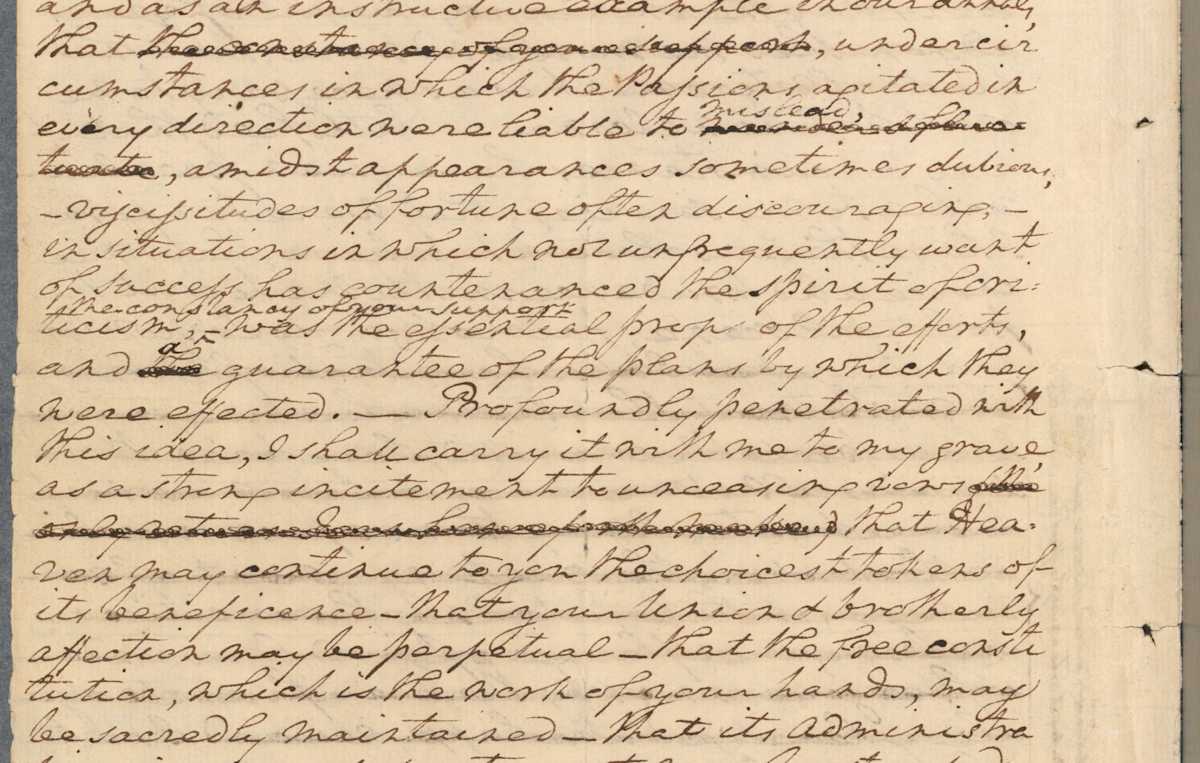 and as an instructive example in our annals,
that the constancy of your support, under cir
cumstances in which the Passions, agitated in
mislead,
every direction were liable to
, amidst appearances sometimes dubious,
– viscissitudes of fortune often discouraging, –
in situations in which not unfrequently want
of success has countenanced the spirit of cri:
the constancy of your support
ticism, – was the essential prop of the efforts,
a
and the guarantee of the plans by which they
were effected. — Profoundly penetrated with
this idea, I shall carry it with me to my grave,
as a strong incitement to unceasing vows
that Hea-
ven may continue to you the choicest tokens of
its beneficence – that your Union & brotherly
affection may be perpetual – that the free consti
tution, which is the work of your hands, may
be sacredly maintained – that its Administra